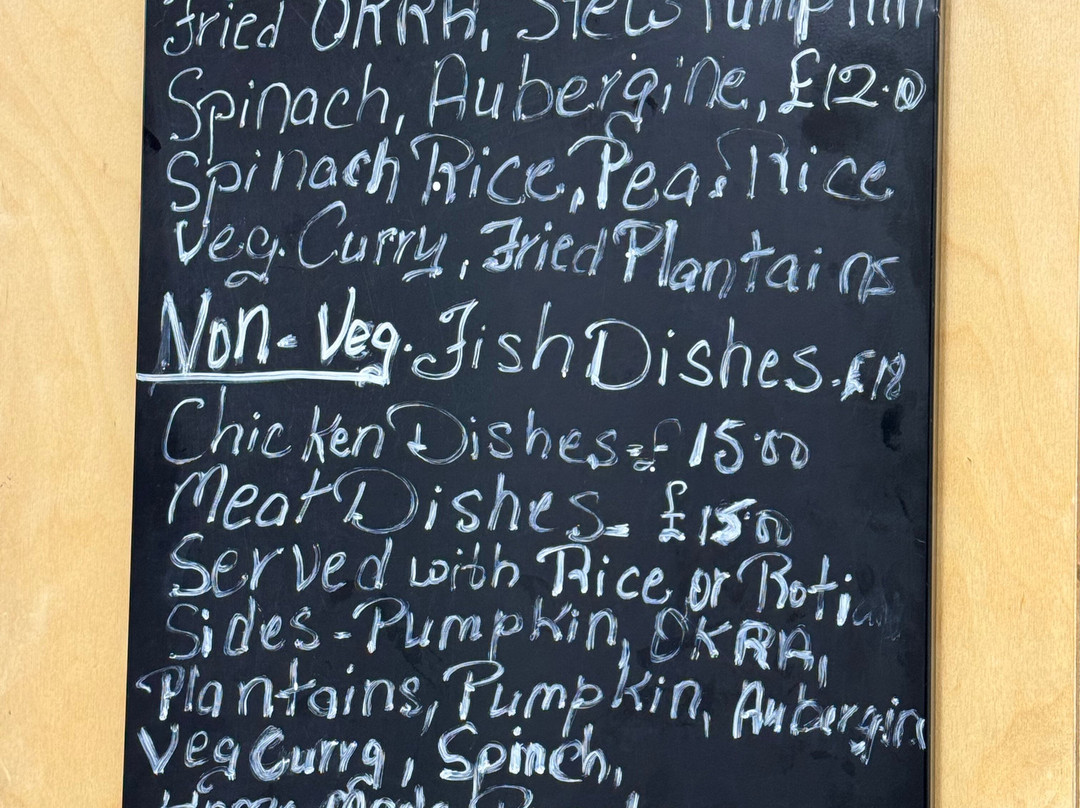 Fried OKRA, Stew Pumpkin
Spinach, Aubergine, £12.0
Spinach Rice, Pea, Rice
Veg. Curry, Fried Plantains
Non-Veg. Fish Dishes. £18
Chicken Dishes = £15.00
Meat Dishes = £15.00
Served with Rice or Roti
Sides - Pumpkin, OKRA,
Plantains, Pumpkin, Aubergin
Veg Curry, Spinch,
Home Made